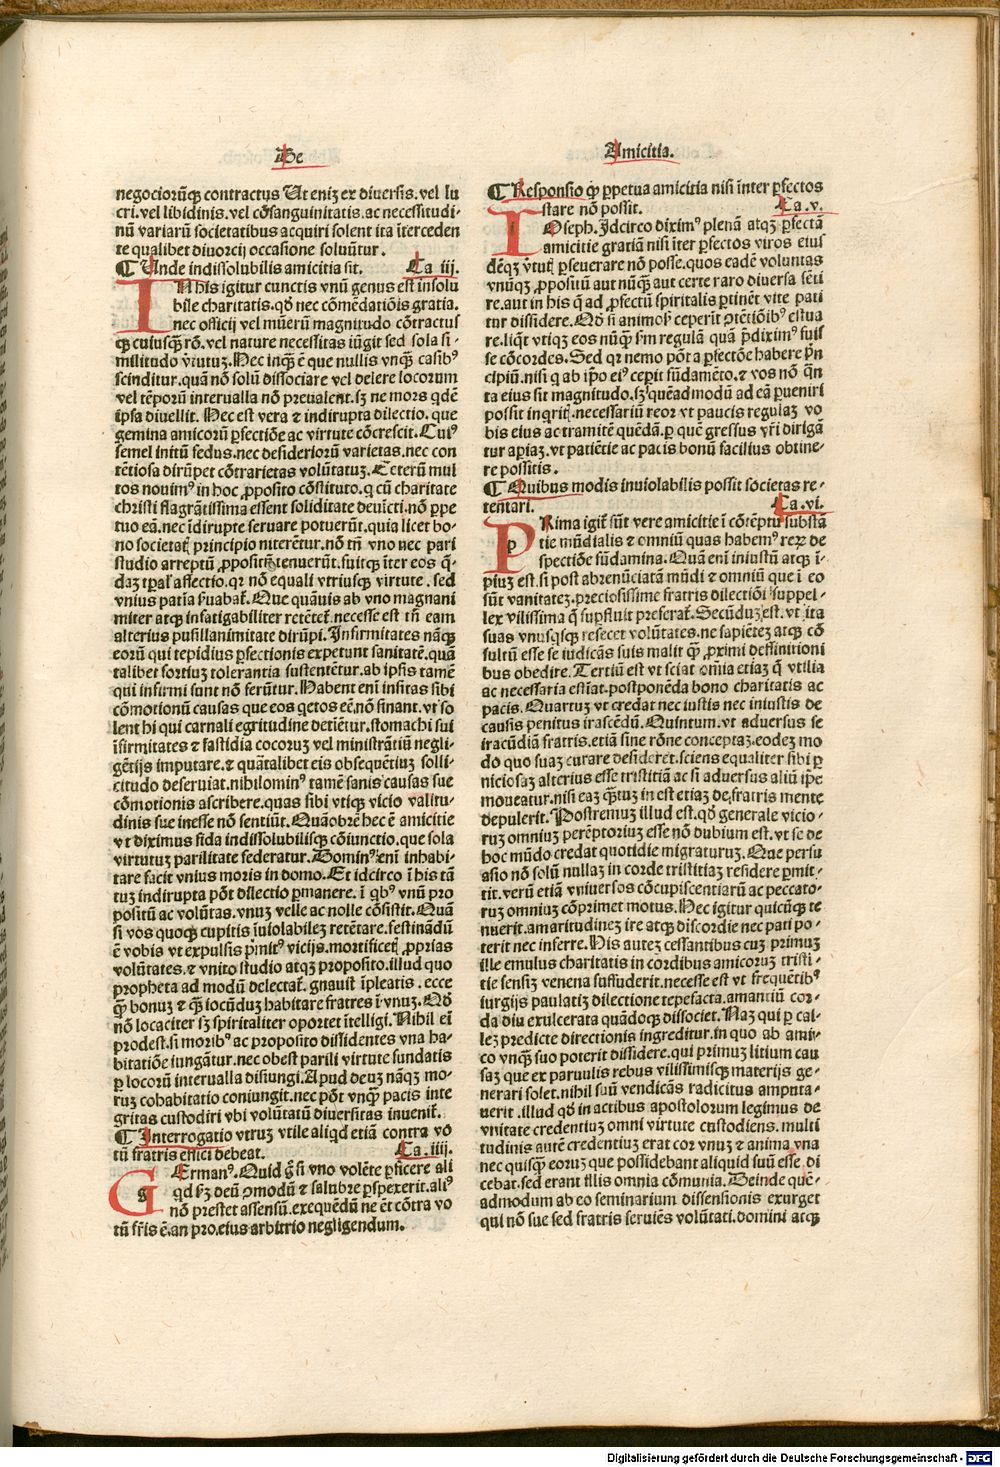 De
Amicitia.
negociorūq̄ contractus Ut eniz ex diuersis. vel lu
cri. vel libidinis. vel cōsanguinitatis. ac necessitudi-
nū variarū societatibus acquiri solent ita īterceden
te qualibet diuorcij occasione soluūtur.
¶ Unde indissolubilis amicitia sit. Ca iij.
IN his igitur cunctis vnū genus est insolu
bile charitatis. qd̄ nec cōmēdatiōis gratia.
nec officij vel mūerū magnitudo cōtractus
q̄ cuiusq̄ rō. vel nature necessitas iūgit sed sola si-
militudo virtutuz. Hec inq̄ ē que nullis vnq̄ casibꝰ
scinditur. quā nō solū dissociare vel delere locorum
vel tēporū interualla nō preualent. sꝫ ne mors qdē
ipsa diuellit. Hec est vera ⁊ indirupta dilectio. que
gemina amicorū ꝑfectiōe ac virtute cōcrescit. Cuiꝰ
semel initū fedus. nec desideriorū varietas. nec con
tētiosa dirūpet cōtrarietas volūtatuz. Ceterū mul
tos nouimꝰ in hoc ꝓposito cōstituto. q cū charitate
christi flagrātissima essent soliditate deuicti. nō ppe
tuo eā. nec īdirupte seruare potuerūt. quia licet bo-
no societatꝭ principio niterētur. nō tn̄ vno nec pari
studio arreptū ꝓpositū tenuerūt. fuitq̄ iter eos q̄-
daz tꝑal' affectio. qꝛ nō equali vtriusq̄ virtute. sed
vnius patīa ẜuabat᷑. Que quāuis ab vno magnani
miter atq̄ infatigabiliter retētet᷑. necesse est tn̄ eam
alterius pusillanimitate dirūpi. Infirmitates nāq̄
eorū qui tepidius ꝑfectionis expetunt sanitatē. quā
talibet fortiuz tolerantia sustentētur. ab ipsis tamē
qui infirmi sunt nō ferūtur. Habent enī insitas sibi
cōmotionū causas que eos qetos eē. nō sinant. vt so
lent hi qui carnali egritudine detiētur. stomachi sui
īfirmitates ⁊ fastidia cocoruz vel ministrātiū negli-
gētijs imputare. ⁊ quātalibet eis obsequētiuz solli-
citudo deseruiat. nihilominꝰ tamē sanis causas sue
cōmotionis ascribere. quas sibi vtiq̄ vicio valitu-
dinis sue inesse nō sentiūt. Quāobrē hec ē amicitie
vt diximus fida indissolubilisq̄ cōiunctio. que sola
virtutuz parilitate federatur. Dominꝰ enī inhabi-
tare facit vnius moris in domo. Et idcirco ī his tā
tuz indirupta pōt dilectio ꝑmanere. ī qbꝰ vnū pro
positū ac volūtas. vnuz velle ac nolle cōsistit. Quā
si vos quoq̄ cupitis īuiolabilez retētare. festinādū
ē vobis vt expulsis pͥmitꝰ vicijs. mortificetꝭ ꝓprias
volūtates. ⁊ vnito studio atqꝫ proposito. illud quo
propheta ad modū delectat᷑. gnauit īpleatis. ecce
q̄ bonuz ⁊ q̄ iocūduz habitare fratres ī vnuz. Qd̄
nō localiter sꝫ spiritaliter oportet ītelligi. Nihil ei
prodest. si moribꝰ ac proposito dissidentes vna ha-
bitatiōe iungātur. nec obest parili virtute fundatis
ꝑ locorū interualla disiungi. Apud deuz nāqꝫ mo-
ruz cohabitatio coniungit. nec pōt vnq̄ pacis inte
gritas custodiri vbi volūtatū diuersitas inuenit᷑.
¶ Interrogatio vtruz vtile aliqd etiā contra vo
tū fratris effici debeat. Ca. iiij.
g
GErmanꝰ. Quid gͦ si vno volēte ꝑficere ali
qd ẜꝫ deū ꝯmodū ⁊ salubre ꝑspexerit. aliꝰ
nō prestet assensū. exequēdū ne ēt cōtra vo
tū fr̄is ē. an pro. eius arbitrio negligendum.
¶ Responsio q̄ ꝑpetua amicitia nisi īnter ꝑfectos
stare nō possit. Ca. v.
i
IOseph. Idcirco diximꝰ plenā atqꝫ ꝑfectā
amicitie gratiā nisi īter ꝑfectos viros eius
dēqꝫ vͥtutꝭ ꝑseuerare nō posse. quos eadē voluntas
vnūqꝫ ꝓpositū aut nūq̄ aut certe raro diuersa sētī
re. aut in his q̄ ad ꝓfectū spiritalis ꝑtinēt vite pati
tur dissidere. Qd̄ si animosꝭ ceperīt ꝯtētiōibꝰ estua
re. liq̄t vtiqꝫ eos nūq̄ ẜm regulā quā p̄diximꝰ fuis
se cōcordes. Sed qꝛ nemo pōt a ꝑfectōe habere pͥn
cipiū. nisi q ab ip̄o eiꝰ ceꝑit fūdamēto. ⁊ vos nō q̄n
ta eius sit magnitudo. sꝫ quēadmodū ad eā ꝑueniri
possit inqritꝭ. necessariū reoꝛ vt paucis regulaz vo
bis eius ac tramitē quēdā. ꝑ quē gressus vr̄i dirigā
tur aꝑiaz. vt patiētie ac pacis bonū facilius obtine-
re possitis.
¶ Quibus modis inuiolabilis possit societas re-
tentari. Ca. vi.
p
PRima igit᷑ sūt vere amicitie ī cōtēptu substā
tie mūdialis ⁊ omniū quas habemꝰ rerz de
spectiōe fūdamina. Quā enī iniustū atqꝫ ī-
piuz est. si post abrenūciatā mūdi ⁊ omniū que ī eo
sūt vanitatez. preciosissime fratris dilectiōi suppel-
lex vilissima q̄ suꝑfluit preferat᷑. Secūduz est. vt ita
suas vnusqsqꝫ resecet volūtates. ne sapiētez atqꝫ cō
sultū esse se iudicās suis malit q̄ ꝓximi deffinitioni
bus obedire. Tertiū est vt sciat om̄ia etiaz q̄ vtilia
ac necessaria estiat. postponēda bono charitatis ac
pacis. Quartuz vt credat nec iustis nec iniustis de
causis penitus irascēdū. Quintum. vt aduersus se
iracūdiā fratris. etiā sine rōne conceptaz. eodez mo
do quo suaz curare desideret. sciens equaliter sibi ꝑ
niciosaz alterius esse tristitiā ac si aduersus aliū ip̄e
moueatur. nisi eaz q̄tuz in est etiaz de fratris mente
depulerit. Postremuz illud est. qd̄ generale vicio-
ruz omniuz perēptoriuz esse nō dubium est. vt se de
hoc mūdo credat quotidie migraturuz. Que persu
asio nō solū nullaz in corde tristitiaz residere ꝑmit-
tit. verū etiā vniuersos cōcupiscentiarū ac peccato-
ruz omniuz cōprimet motus. Hec igitur quicūqꝫ te
nuerit. amaritudinez ire atqꝫ discordie nec pati po-
terit nec inferre. His autez cessantibus cuz primuz
ille emulus charitatis in cordibus amicoruz tristi-
tie sensiz venena suffuderit. necesse est vt frequētibꝰ
iurgijs paulatiz dilectione tepefacta. amantiū cor-
da diu exulcerata quādoqꝫ dissociet. Naz qui ꝑ cal-
lez predicte directionis ingreditur. in quo ab ami-
co vnq̄ suo poterit dissidere. qui primuz litium cau
saz que ex paruulis rebus vilissimisqꝫ materijs ge-
nerari solet. nihil suū vendicās radicitus amputa-
uerit. illud qd̄ in actibus apostolorum legimus de
vnitate credentiuz omni virtute custodiens. multi
tudinis autē credentiuz erat cor vnuz ⁊ anima vna
nec quisq̄ eoruz que possidebant aliquid suū esse di
cebat. sed erant illis omnia cōmunia. Deinde quē-
admodum ab eo seminarium dissensionis exurget
qui nō sue sed fratris seruiēs volūtati. domini atqꝫ
Digitalisierung gefördert durch die Deutsche Forschungsgemeinschaft - DFG